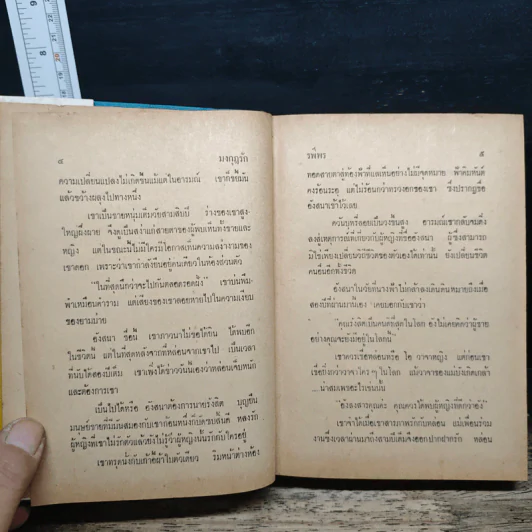 ๔ มงกุฎรัก
ความเปลี่ยนแปลงไม่เกิดขึ้นแม้แต่ในอารมณ์ เขาก็ขยี้มัน
แล้วขว้างผลุงไปทางหนึ่ง
เขาเป็นชายหนุ่มเต็มวัยสามสิบปี ร่างของเขาสูง
ใหญ่ผึ่งผาย จึงดูเป็นสง่าแก่สายตาของผู้พบเห็นทั้งชายและ
หญิง แต่ในขณะนี้ไม่มีใครมีโอกาสเห็นความสง่างามของ
เขาดอก เพราะว่าเขากำลังยืนอยู่คนเดียวในห้องส่วนตัว
"ในที่สุดนึกว่าจะไปกันตลอดรอดฝั่ง เขาบ่นพึม
พำเหมือนคำราม แต่เสียงของเขาลอยหายไปในความเงียบ
ของยามบ่าย
อังสนา ชื่อนี้ เขาภาวนาไม่ขอได้ยิน ได้พบอีก
ในชีวิตนี้ แต่ในที่สุดหลังจากที่หล่อนจากเขาไป เป็นเวลา
ที่นับได้สองปีเต็ม เขาเพิ่งได้ข่าววันนี้เองว่าหล่อนเจ็บหนัก
และต้องการเขา
เป็นไปได้หรือ อังสนาต้องการนายรังสิต บุญยืน
มนุษย์ชายที่มั่นสมองกับเขาก้อนหนึ่งกับดวงขวัญดี หลงรัก
ผู้หญิงที่เขาไม่รักตัวแล้วยังไม่รู้ว่าผู้หญิงนั้นรักกับใครอยู่
เขาทรุดนั่งกับเก้าอี้ผ้าใบตัวเดียว ริมหน้าต่างห้อง
รพีพร ๕
ทอดสายตาสู่ท้องฟ้าที่แลเห็นอย่างไม่มีจุดหมาย ฟ้าคิมหันต์
คงร้อนระอุ แต่ไม่ร้อนกว่าทรวงอกของเขา ซึ่งปรากฏชื่อ
อังสนาเข้าไว้เลย
ควันบุหรี่ลอยเป็นวงขึ้นสูง อารมณ์เขากลับจมดิ่ง
ลงสู่เหตุการณ์ที่เกี่ยวกับผู้หญิงที่ชื่ออังสนา ผู้ซึ่งสามารถ
มิใช่เพียงเปลี่ยนวิถีชีวิตของตัวเองได้เท่านั้น ยังเปลี่ยนชีวิต
คนอื่นอีกทั้งชีวิต
อังสนาในวัยที่นางฟ้าไม่กล้าลงเดินดินหมายถึงเมื่อ
สองปีที่ผ่านมานี่เอง เคยบอกกับเขาว่า
"คุณรังสิตเป็นคนดีที่สุดในโลก อังไม่เคยคิดว่าผู้ชาย
อย่างคุณจะยังมีอยู่ในโลกนี้"
เขาควรเชื่อหล่อนหรือ ไอ้ วาจาหญิง แต่ก่อนเขา
เชื่อยิ่งกว่าวาจาใดๆ ในโลก แม้วาจาของแม่บังเกิดเกล้า
...น่าสมเพชอะไรเช่นนั้น
"อังสงสารคุณค่ะ คุณควรได้พบผู้หญิงที่ดีกว่าอัง"
เขาจำได้เมื่อเขาสารภาพรักกับหล่อน แม่เพื่อนร่วม
งานซึ่งเวลาผ่านมาถึงสามปีเต็มจึงเอ่ยปากฝากรัก หล่อน